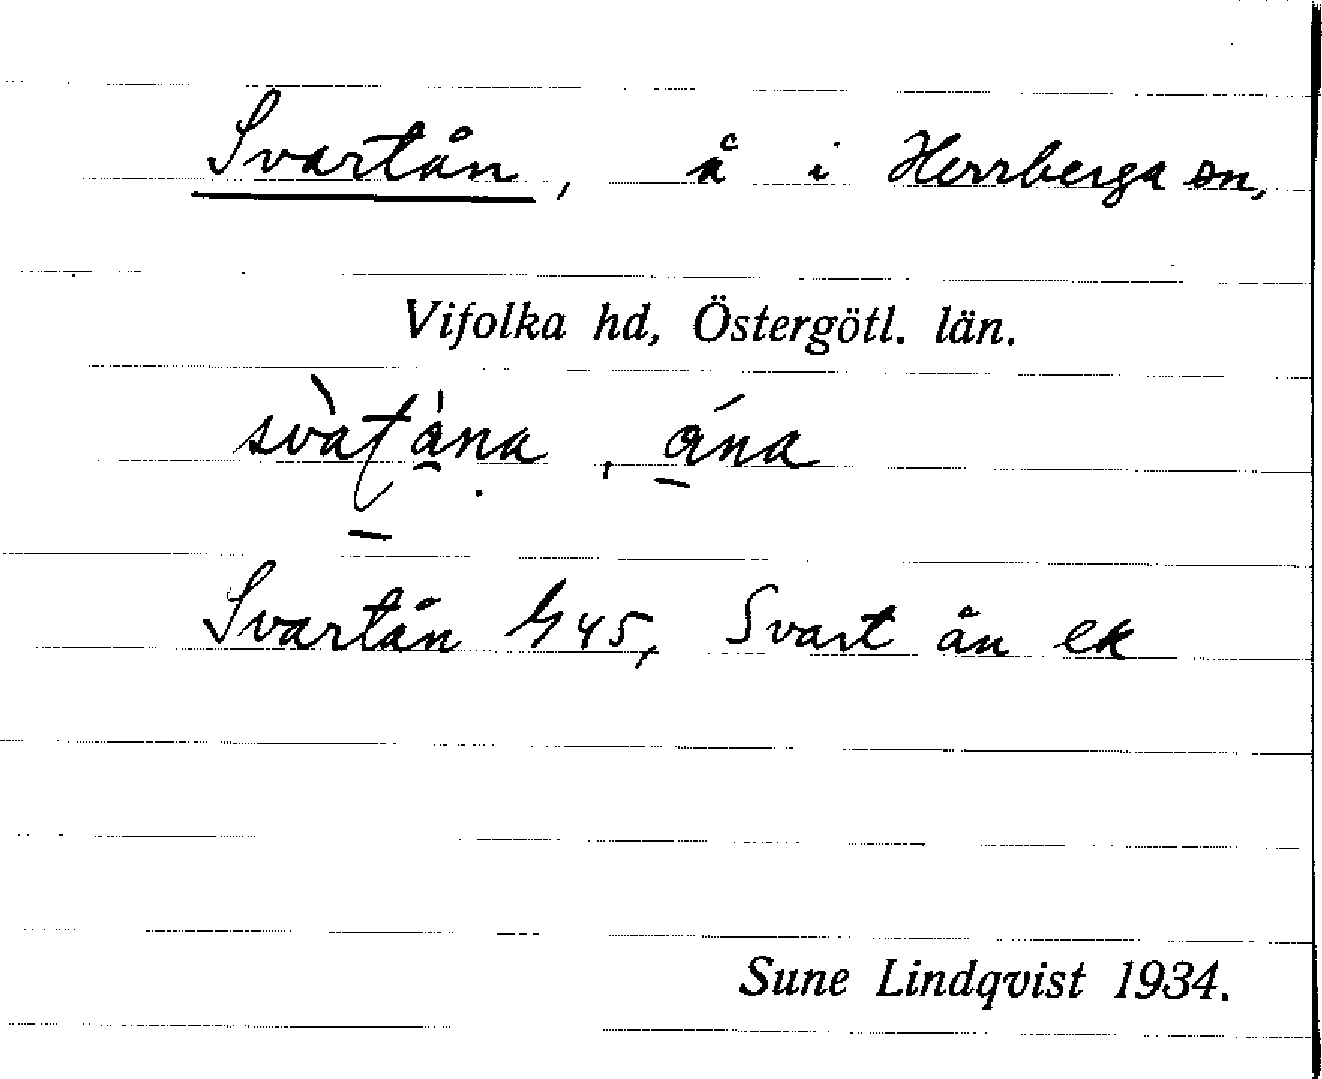 Svartån, å i Herrberga sn,
Vifolka hd, Östergötl. län.
svàtåna, åna
Svartån G 45, Svart ån ek
Sune Lindqvist 1934.